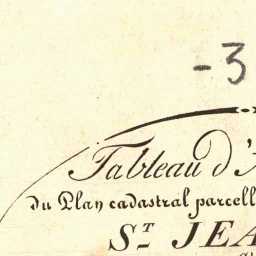 -3
Tableau d'A
du Plan cadastral parcell
ST JEA